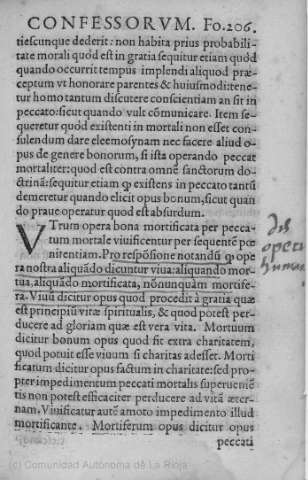 CONFESSORVM. Fo.206.
tiescunque dederit: non habita prius probabili-
tate morali quòd est in gratia sequitur etiam quòd
quando occurrit tempus implendi aliquod præ-
ceptum vt honorare parentes & huiusmodi: tene-
tur homo tantum discutere conscientiam an sit in
peccato: sicut quando vult cōmunicare. Item se-
queretur quòd existenti in mortali non esset con-
sulendum dare eleemosynam nec facere aliud o-
pus de genere bonorum, si ista operando peccat
mortaliter: quod est contra omnē sanctorum do-
ctrinā: sequitur etiam ꝙ existens in peccato tantū
demeretur quando elicit opus bonum, sicut quan
do praue operatur quod est absurdum.
VTrum opera bona mortificata per pecca-
tum mortale viuificentur per sequentē pœ
nitentiam. Pro respōsione notandū ꝙ ope
ra nostra aliquādo dicuntur viua: aliquando mor-
tua, aliquādo mortificata, nōnunquàm mortife-
ra. Viuū dicitur opus quod procedit à gratia quæ
est principiū vitæ spiritualis, & quod potest per-
ducere ad gloriam quæ est vera vita. Mortuum
dicitur bonum opus quod fit extra charitatem,
quod potuit esse viuum si charitas adesset. Morti
ficatum dicitur opus factum in charitate: sed pro-
pter impedimentum peccati mortalis superueniē
tis non potest efficaciter perducere ad vitā æter-
nam. Viuificatur autē amoto impedimento illud
mortificante. Mortiferum opus dicitur opus
peccati
operi
humano
(c) Comunidad Autónoma de La Rioja